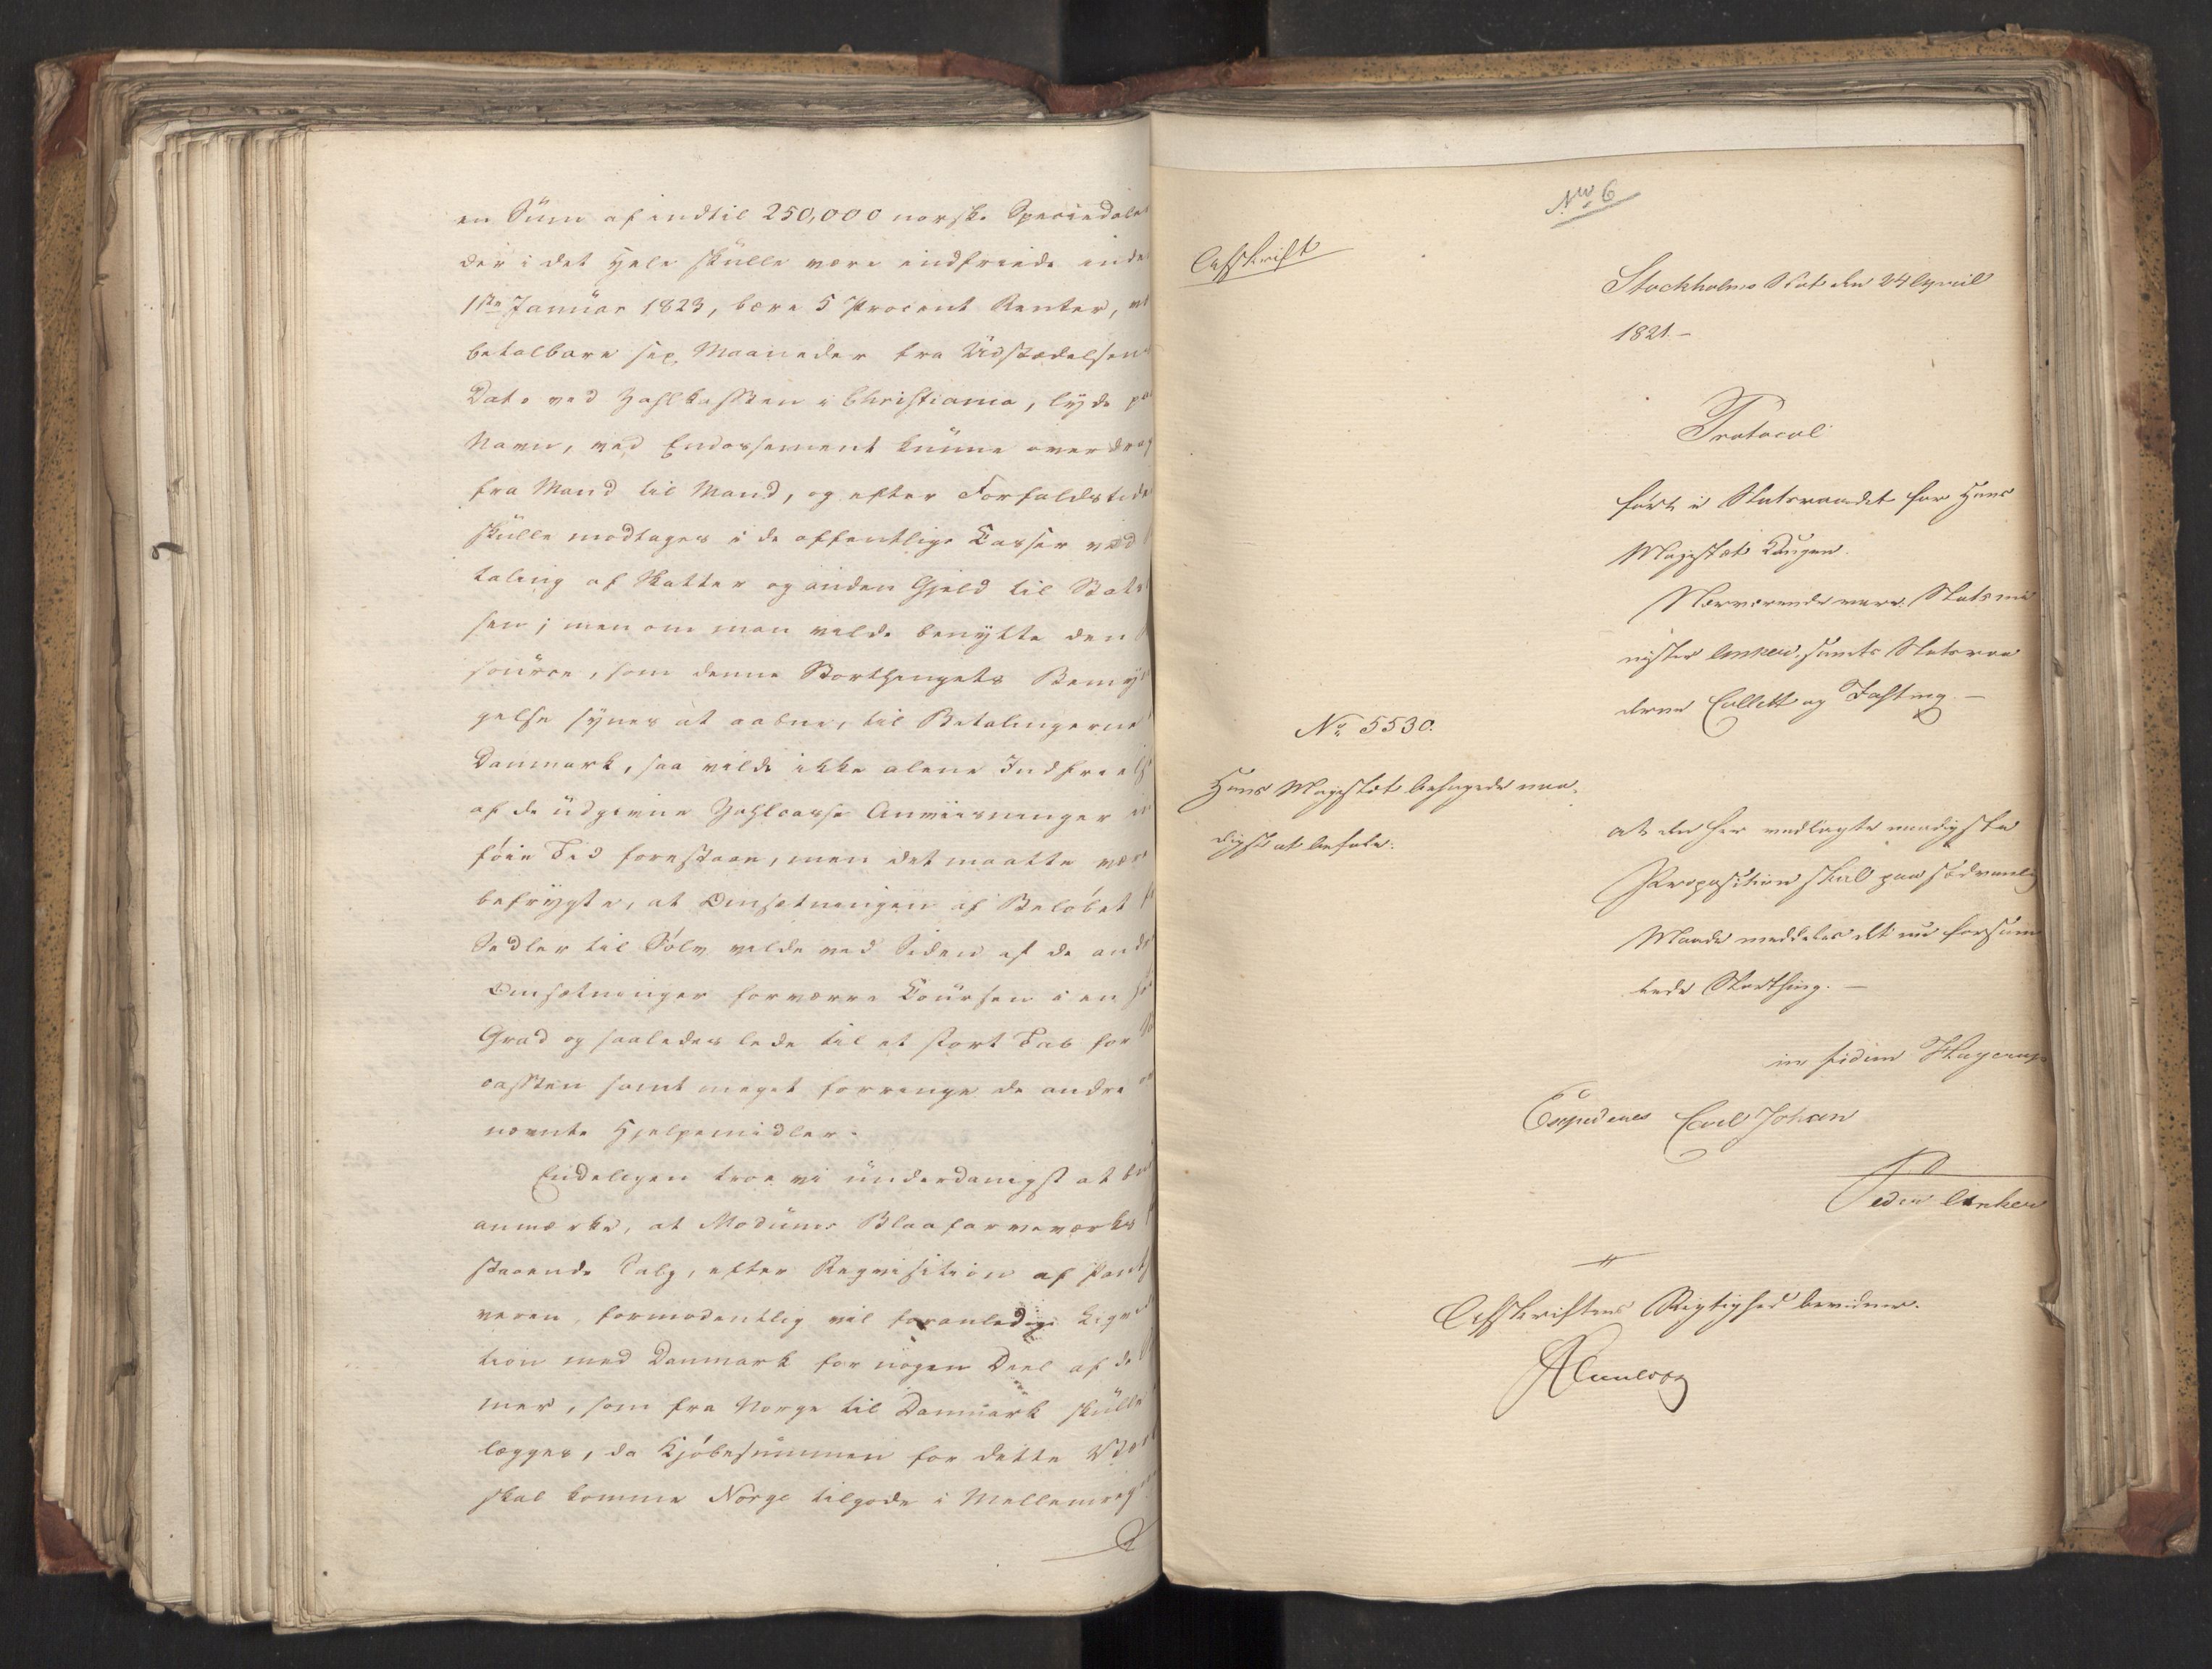 en Süm af indtil 250,000 norske Speciedaler
der i det Hele skülle være indfriede inde
1ste Janüar 1823, bære 5 Procent Renter,
betalbare sex Maaneder fra Üdstædelsen
Dato ved Zahlkassten i Christiania, lyde paa
Navn, ved Endossement künne overdrag
fra Mand til Mand, og efter Forfaldstide
skülle modtages i de offentlige Casser ved
taling af Skatter og anden Gjeld til Stats
sen; men om man vilde benytte den
source, som denne Storthingets Bemyn
gelse synes at aabne, til Betalingerne
Danmark, saa vilde ikke alene Indfriels
af de üdgivne Zahlcasse Anviisninger
føie Tid forestaae, men det maatte være
befrygte, at Omsætningen af Beløbet
Sedler til Sølv vilde ved Siden af de andre
Omsætninger forværre Coürsen i en
Grad og saaledes lede til et stort Tab for
cassten samt meget forringe de andre
nævnte Hjelpemidler.
Endeligen troe vi ünderdanigst at
anmærke, at Modüms Blaafarveværks
staaende Salg, efter Reqvisition af Pant
veren, formodentlig vil foranledige Liqvida
tion med Danmark for nogen Deel af de
mer, som fra Norge til Danmark skülle
lægges, da Kjøbesümmen for dette Værk
skal komme Norge tilgode i Mellemreg
No 6
Afskrift
Stockholms Slot den 24 April
1821.-
Protocol
ført i Statsraadet for Hans
Majestæt Kongen.
Nærværende vare: Statsmi
nister Anker, samt Statsraa
derne Collett og Fasting.-
No 5530.
Hans Majestæt behagede naa-
digst at befale:
at den her vedlagte naadigste
Proposition skal paa sædvanlig
Maade meddeles det nu forsam
lede Storthing.-
in fidem Hagerup
Expederes Carl Johan
Peder Anker
Afskriftens Rigtighed bevidner.